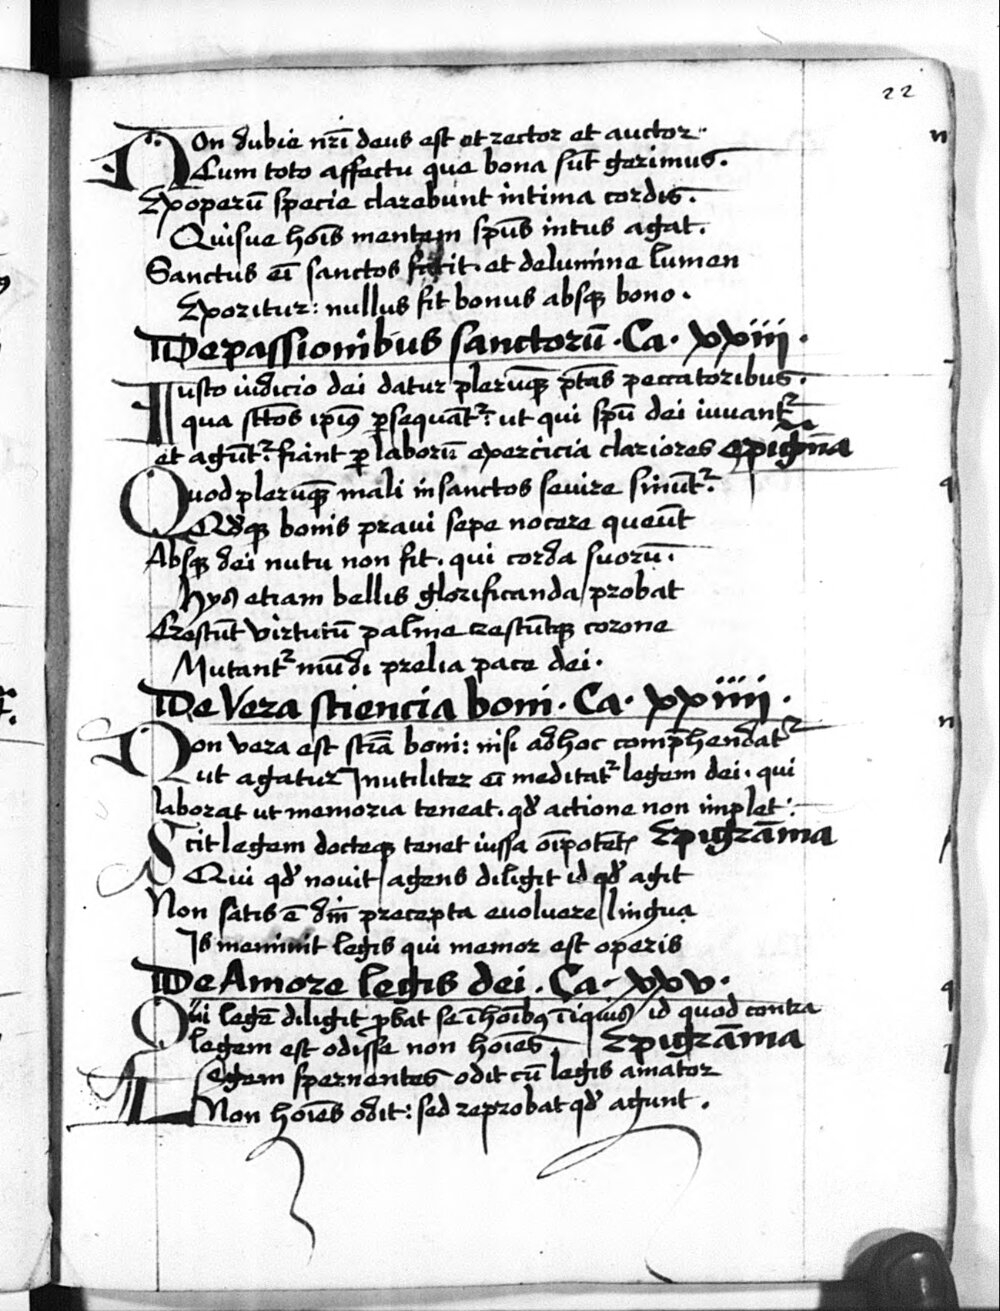 22
Non dubie nr̄i deus est et rector et auctor
Cum toto affectu que bona sūt gerimus.
Ex operū specie clarebunt intima cordis.
Quisue hōis mentem spūs intus agat.
Sanctus eī sanctos facit. et de lumine lumen
Exoritur: nullus fit bonus absqꝫ bono.
De passionibus sanctorū. Ca. xxiii.
Iusto iudicio dei datur plerūqꝫ ptās peccatoribus.
qua sctōs ipiꝰ ꝑsequāt᷑: ut qui spū dei iuuant᷑
et agūt᷑. fiant ꝑ laborū exercicia clariores epigrāa
Quod plerūqꝫ mali in sanctos seuire sinūt᷑.
Qdqꝫ bonis praui sepe nocere queūt
Absqꝫ dei nutu non fit. qui corda suorū.
Hys etiam bellis glorificanda probat
Crescūt virtutū palme crescūtqꝫ corone
Mutant᷑ mūdi prelia pace dei.
De Vera sciencia boni. Ca. xxiiii.
Non vera est sciā boni: nisi ad hoc comp̄hendat᷑
ut agatur Inutiliter eī meditat᷑ legem dei. qui
laborat ut memoria teneat. qd̓ actione non implet:
Scit legem docteqꝫ tenet iussa oīpotētꝭ Epigrāma
Qui qd̓ nouit agens diligit id qd̓ agit
Non satis ē dnī precepta euoluere lingua
Is meminit legis qui memor est operis
De Amore legis dei. Ca. xxv.
Qui legē diligit ꝓbat se ī hoībꝰ īiquis id quod contra
legem est odisse non hoīes Epigrāma
Legem spernentes odit cū legis amator
Non hoīes odit: sed reprobat qd̓ agunt.